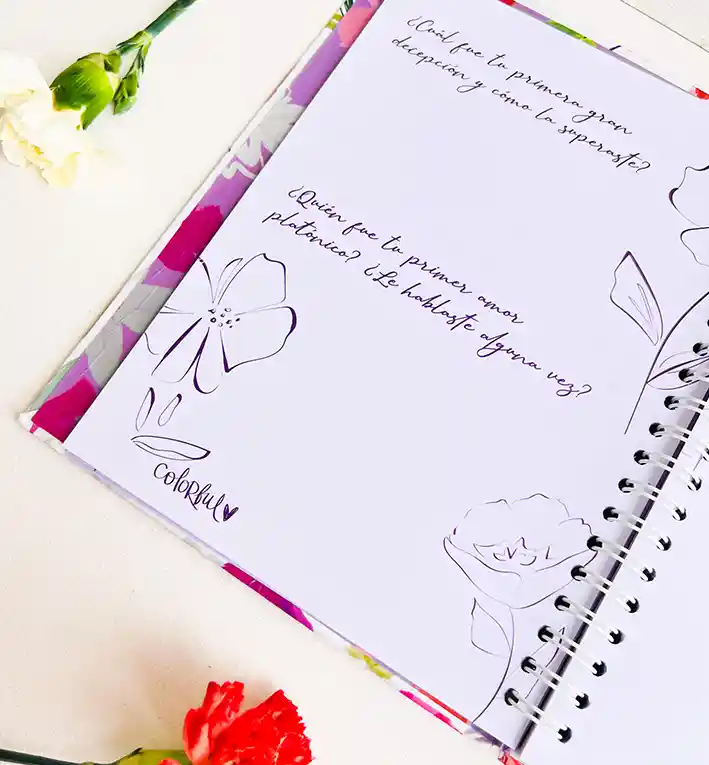 ¿Cuál fue tu primera gran
decepción y cómo la superaste?
¿Quién fue tu primer amor
platónico? ¿Le hablaste alguna vez?
COLORFUL